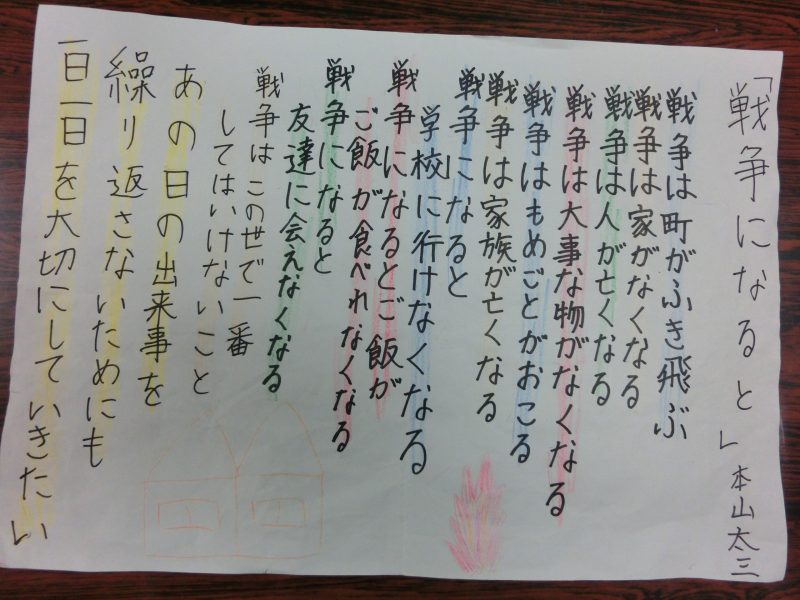 「戦争になると」 本山太三
戦争は町がふき飛ぶ
戦争は家がなくなる
戦争は人が亡くなる
戦争は大事な物がなくなる
戦争はもめごとがおこる
戦争は家族が亡くなる
戦争になると
学校に行けなくなる
戦争になるとご飯が
ご飯が食べれなくなる
戦争になると
友達に会えなくなる
戦争はこの世で一番
してはいけないこと
あの日の出来事を
繰り返さないためにも
一日一日を大切にしていきたい